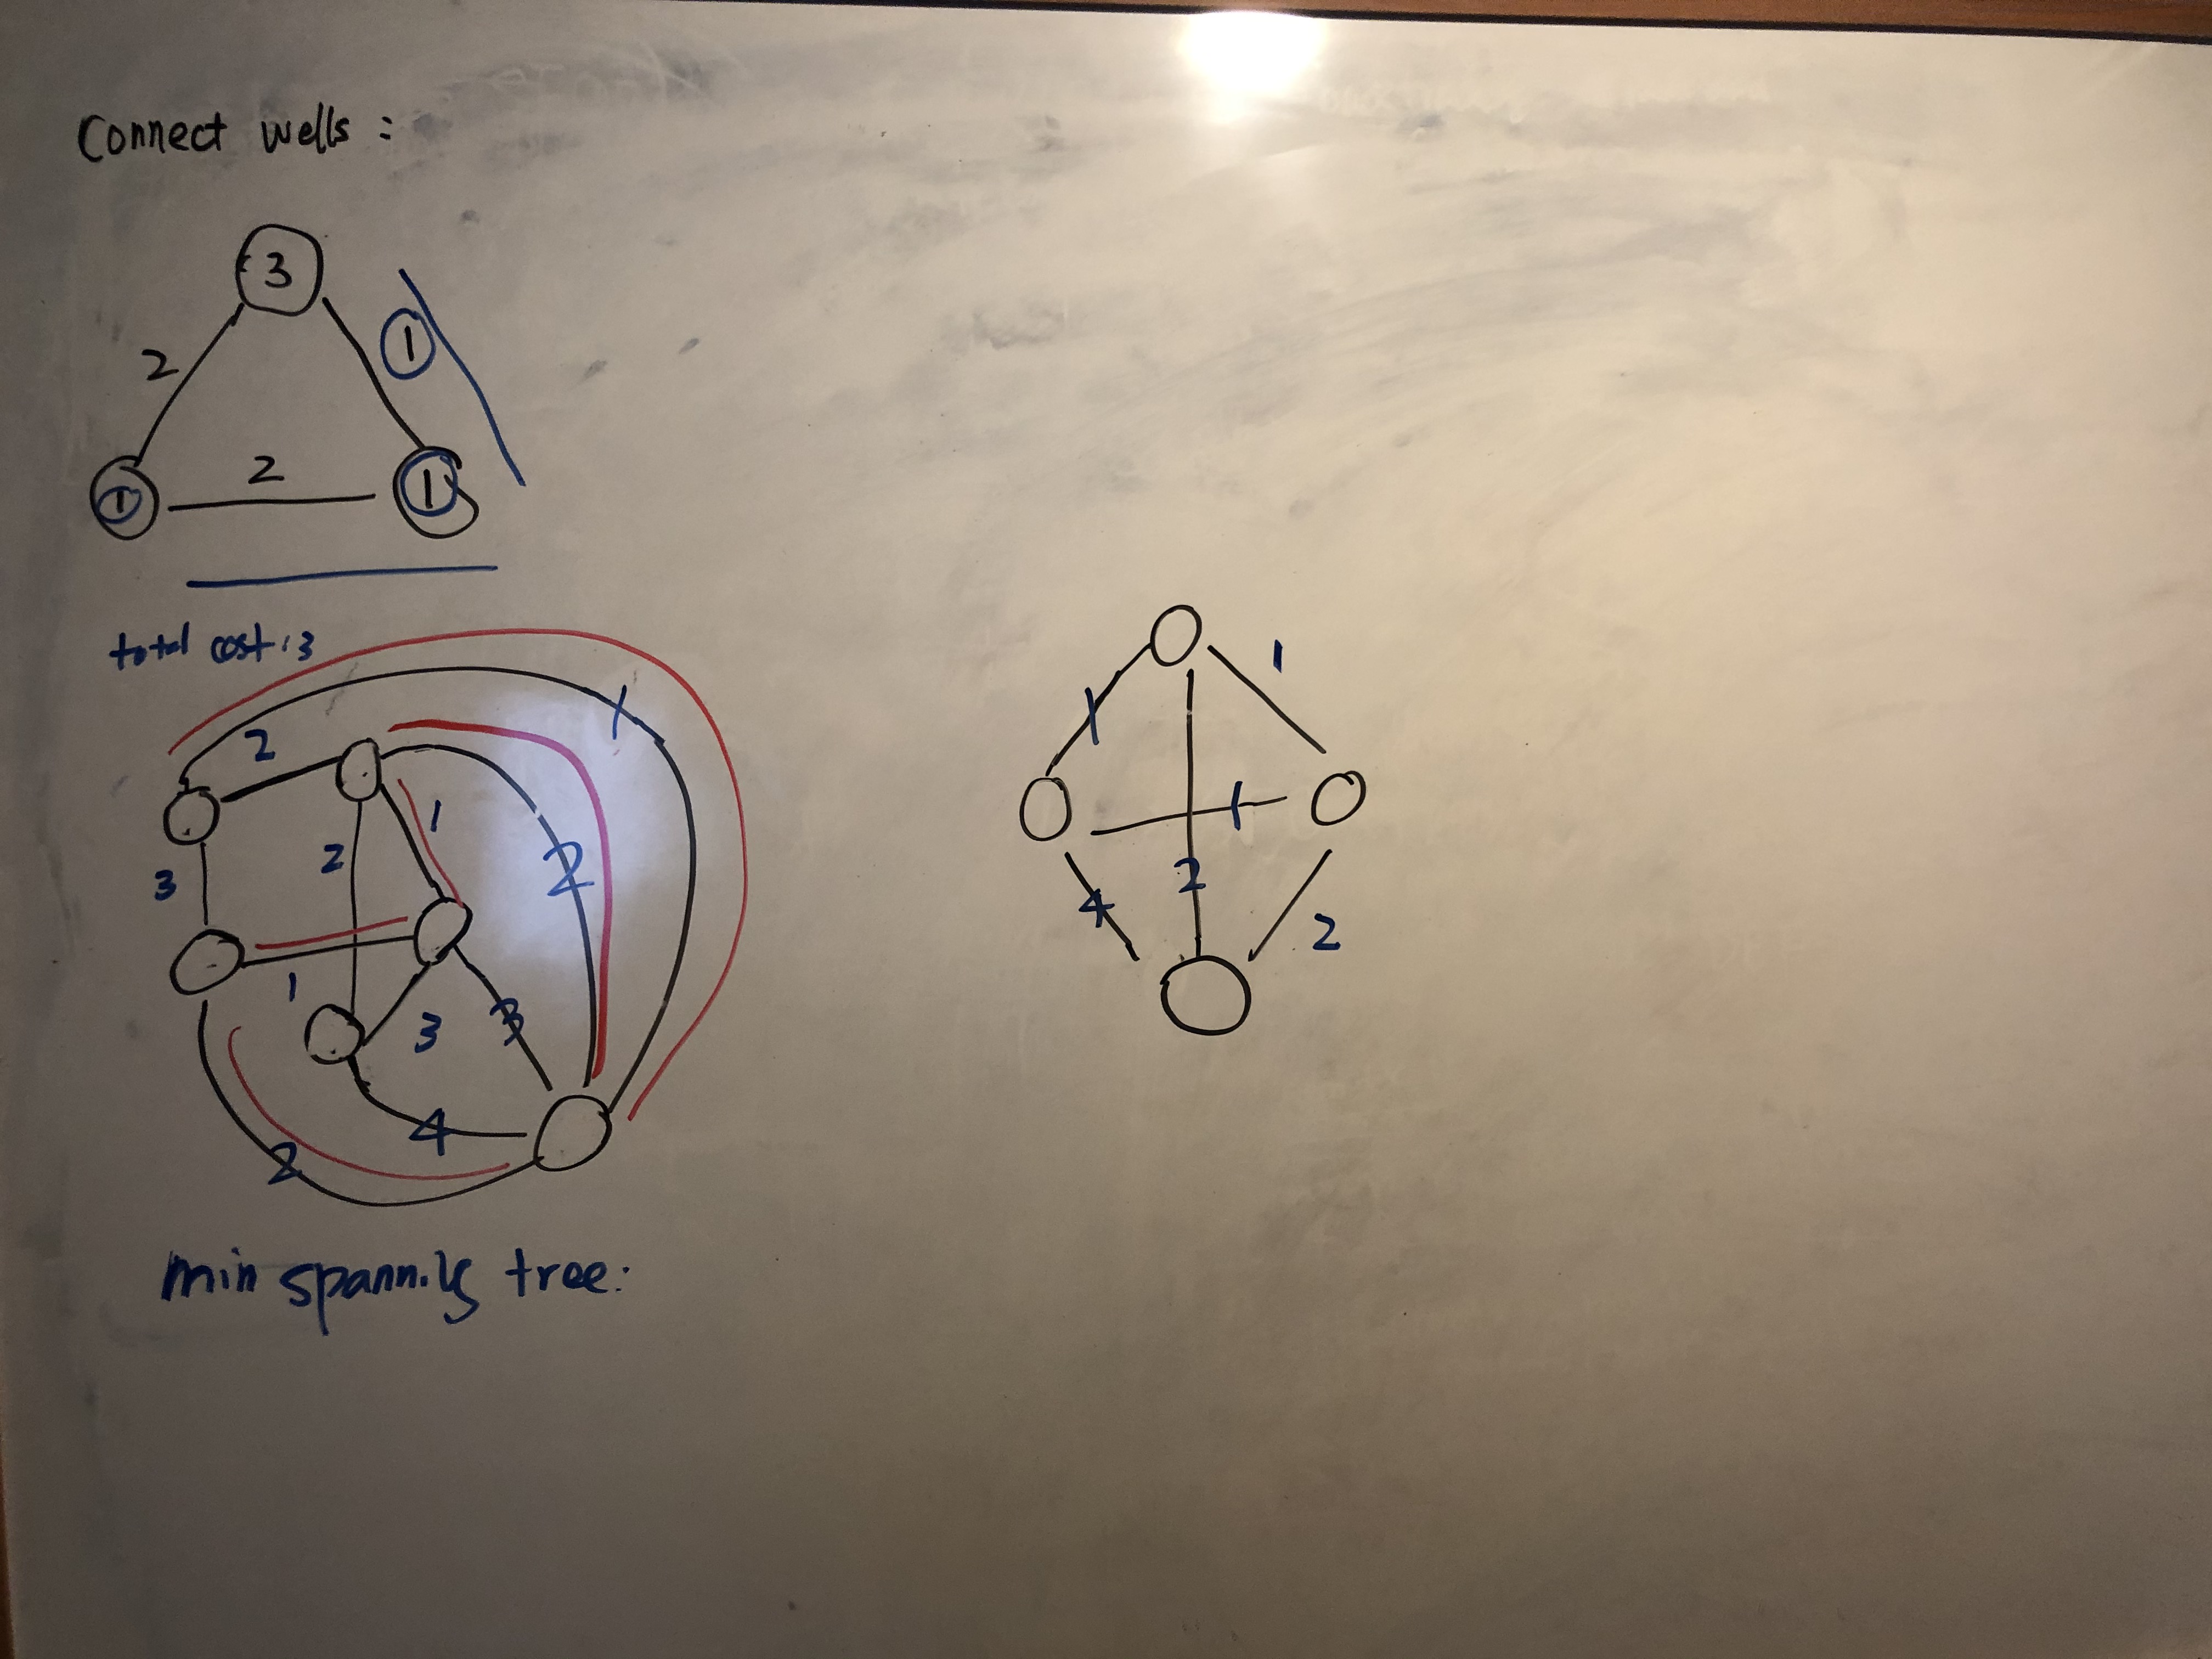 Connect wells :
3
2
1
2
1
1
total cost : 3
1
2
1
2
2
3
1
3
3
4
2
min spanning tree:
1
1
1
2
4
2